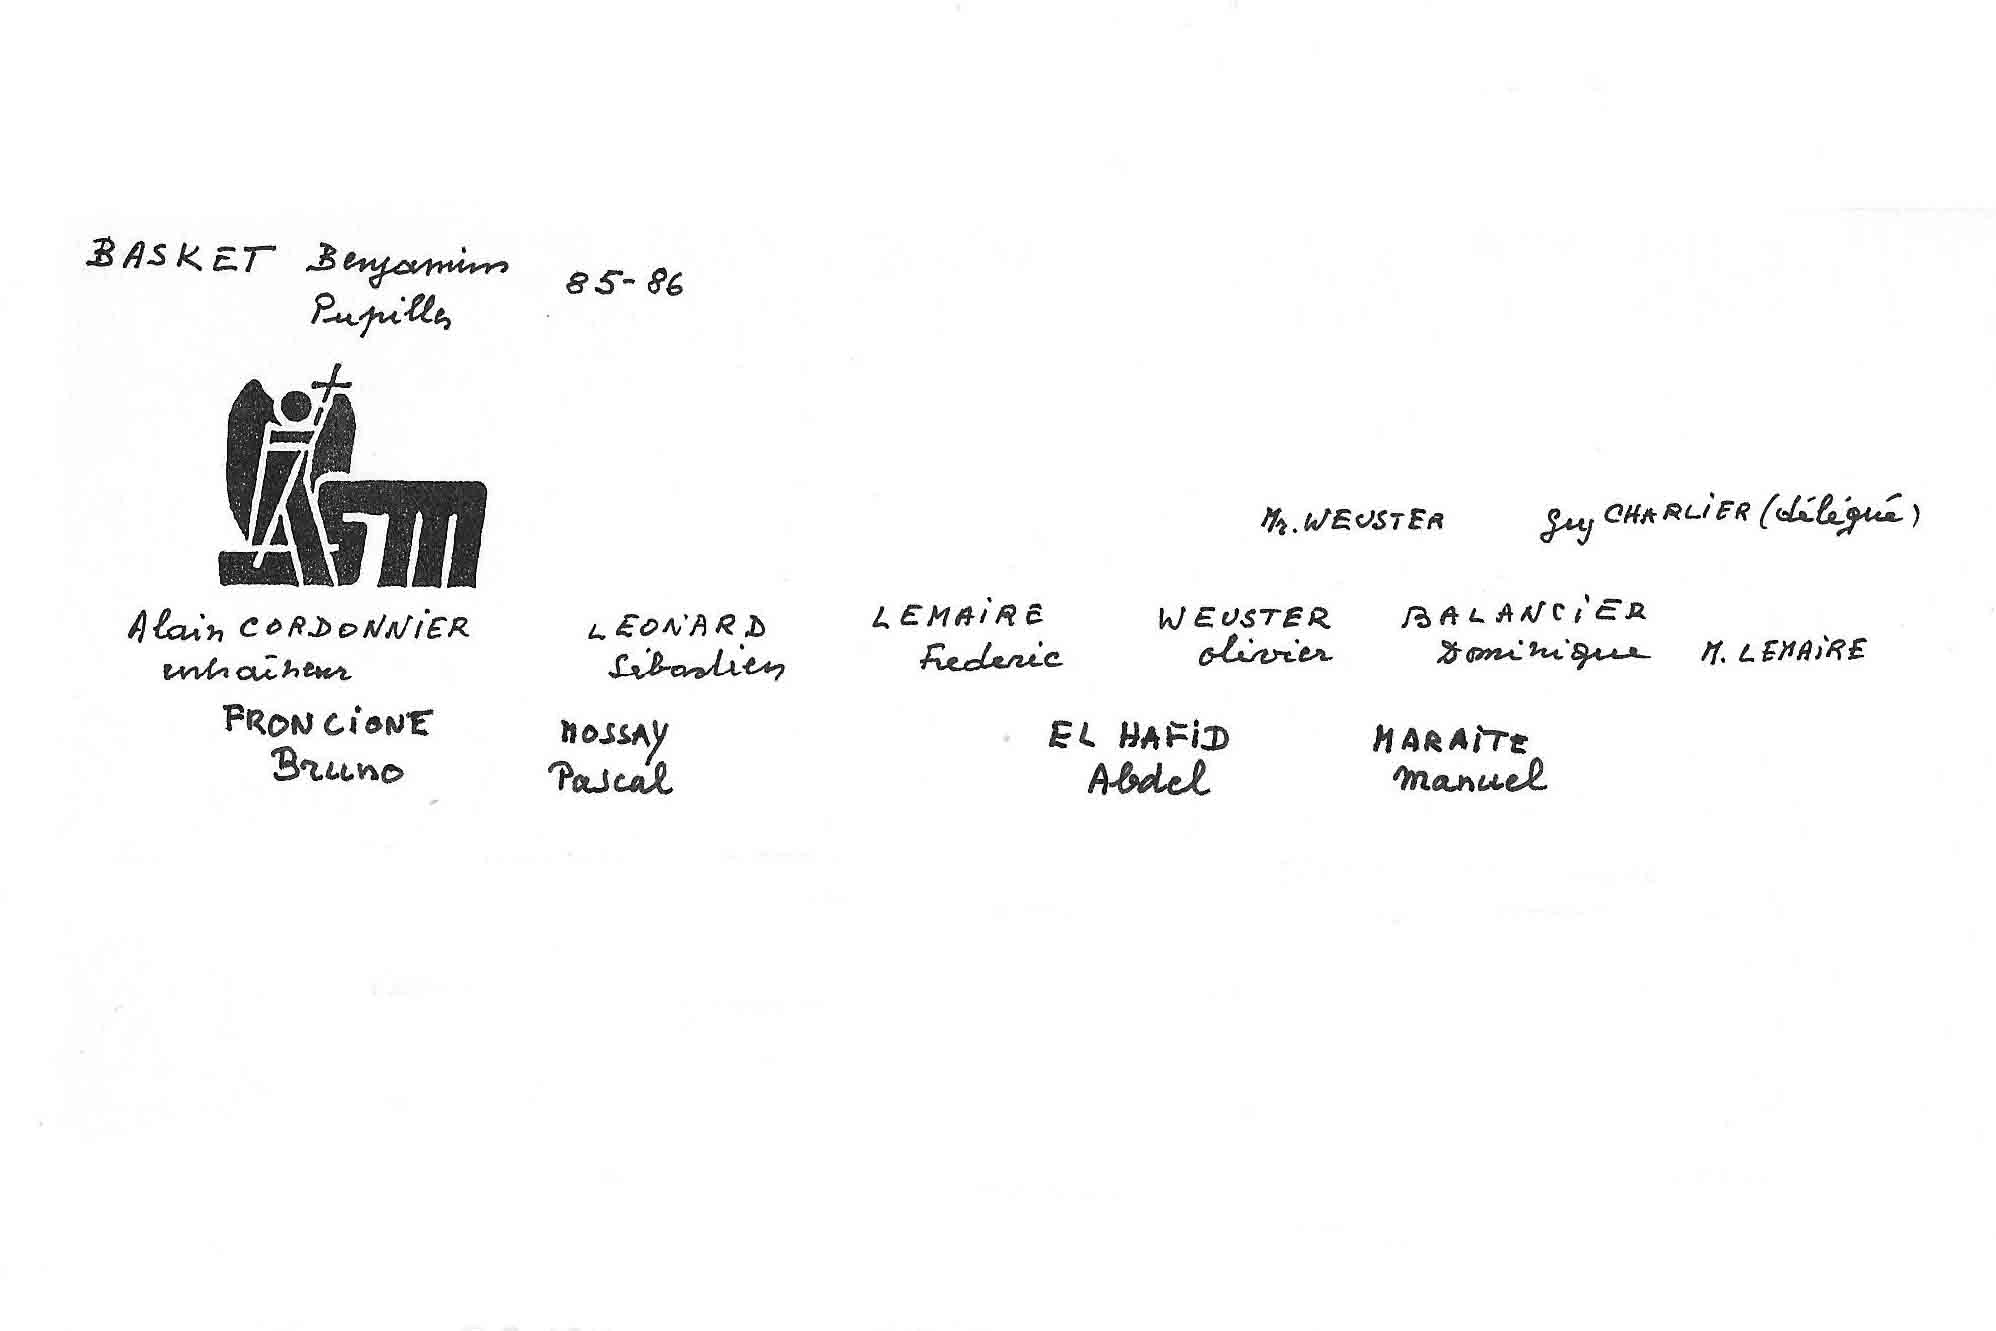 BASKET Benjamins 85-86
Pupilles
ASM
Mr. WEUSTER Guy CHARLIER (délégué)
Alain CORDONNIER LEONARD LEMAIRE WEUSTER BALANCIER
entraîneur Sébastien Frederic Olivier Dominique M. LEMAIRE
FRONCIONE MOSSAY EL HAFID MARAITE
Bruno Pascal Abdel Manuel